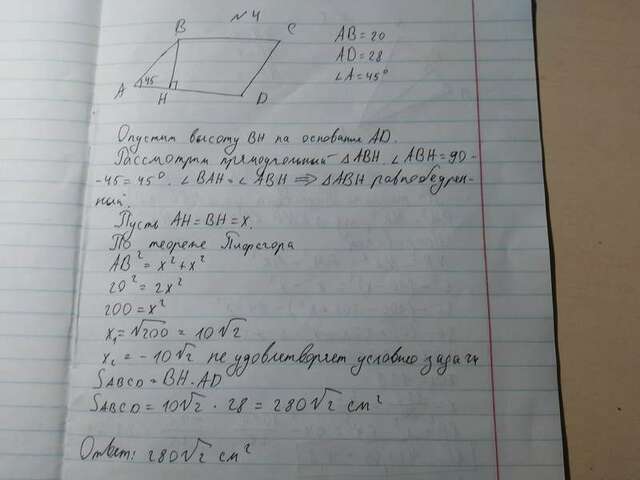 №4
B C
AB = 20
AD = 28
∠A = 45°
A 45 H D
Опустим высоту BH на основание AD.
Рассмотрим прямоугольный △ABH. ∠ABH = 90 -
- 45 = 45°. ∠BAH = ∠ABH ⟹ △ABH равнобедрен-
ный.
Пусть AH = BH = x.
По теореме Пифагора
AB² = x² + x²
20² = 2x²
200 = x²
x₁ = √200 = 10√2
x₂ = - 10√2 не удовлетворяет условию задачи
SABCD = BH · AD
SABCD = 10√2 · 28 = 280√2 см²
Ответ: 280√2 см²